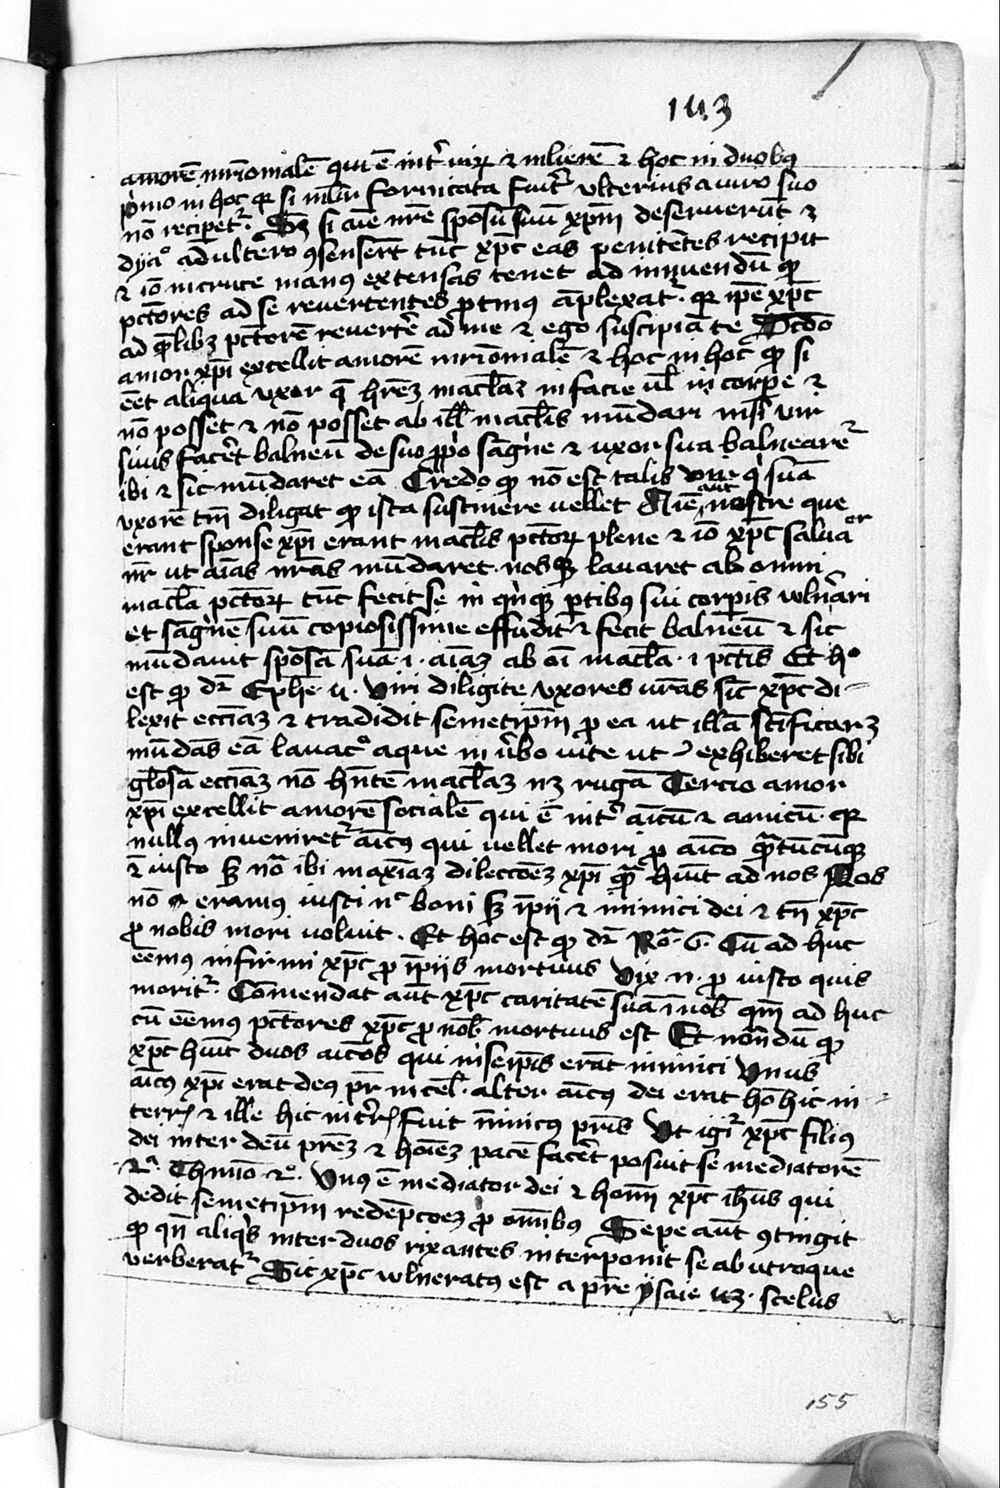 143
amorē mr̄iomialē qui ē int̾ uirꝝ ⁊ mlierē ⁊ hoc in duobꝰ
p̾mo in hoc qꝛ si ml̾ier fornicata fuit̾ ulterius a uiro suo
nō recipet̾. Sꝫ si aīe nr̄e sponsū suū xp̄m deseruerūt ⁊
dya̾º adultero ꝯsenserūt tūc xp̄c eas penitētes recipit
⁊ iō in cruce manꝰ extensas tenet ad innuendū ꝙ
pctōres ad se reuertentes ꝓtinꝰ āplexat̾. qꝛ ip̄e xp̄c
ad q̄libꝫ pctōrē reuert̾e ad me ⁊ ego suscipiā te Scdō
amor xp̄i excellit amorē mr̄iomialē ⁊ hoc in hoc ꝙ si
eēt aliqua uxor q̄ hr̄eꝫ macl̄aꝫ in facie ul̄ in corpe ⁊
nō posset ⁊ nō posset ab ill̄ macl̄is mūdari nisi vir
suus facēt balneū de suo ꝓp̾o sāgne ⁊ uxor sua balnearet̾
ibi ⁊ sic mūdaret eā Credo ꝙ nō est talis vir q̾ suā
vxorē tm̄ diligat ꝙ ista sustinere uellet Aīe aūt nostre que
erant sponse xp̄i erant macl̄is pctōrꝝ plene ⁊ iō xp̄c saluator
nr̄ ut aīas nr̄as mūdaret. nosqꝫ lauaret ab omni
macl̄a pctōrꝝ tūc fecit se in q̾nqꝫ ꝑtibꝰ sui corpis vuln̾ari
et sāgnē suū copiosissime effudit ⁊ fecit balneū ⁊ sic
mūdauit sposā suā .i. aīaꝫ ab oī macl̄a .i. pctīs Et hº
est ꝙ dr̄ Ephe. u. Viri diligite vxores ur̄as sic̄ xp̄c di-
lexit eccīaꝫ ⁊ tradidit semetip̄m ꝓ ea ut illā sc̄ificarꝫ
mūdās eā lauacº aque in ūbo uite ut exhiberet sibi
gl̄osā eccīaꝫ nō hn̄tē macl̄aꝫ nꝫ rugā Tercio amor
xp̄i excellit amorē socialē qui ē int̾ aīcū ⁊ amicū. qꝛ
nullꝰ inueniret̾ aīcꝰ qui uellet mori ꝓ aīco q̄ntūcūqꝫ
⁊ iusto sꝫ nō ibi maxīaꝫ dileccōeꝫ xp̄i q̄ꝫ hūit ad nos Nos
nō eramꝰ iusti nc̄ boni sꝫ īpii ⁊ inimici dei ⁊ tn̄ xp̄c
ꝓ nobis mori uoluit. Et hoc est ꝙ dr̄ Rō. 6. Cū ad huc
eēmꝰ infirmi xp̄c ꝓ īpiis mortuus Vix n. ꝓ iusto quis
morit̾. Cōmendat aūt xp̄c caritatē suā ī nob̄ qm̄ ad huc
cū eēmꝰ pctōres xp̄c ꝓ nob̄ mortuus est Et notādū ꝙ
xp̄c hūit duos aīcos qui īserp̄is erāt inimici Vnus
aīcꝰ xp̄i erat deꝰ pr̄ in cel̄. alter aīcꝰ dei erat hō hic in
terrꝭ ⁊ ille hic int̾rꝭ fuit inimicꝰ pr̄is Vt igr̾ xp̄c filiꝰ
dei inter deū pr̄eꝫ ⁊ hoīeꝫ pacē facēt posuit se mediatorē
Thimō 2º. Vnꝰ ē mediator dei ⁊ homī xp̄c ih̄us qui
dedit semetip̄m redēpcōeꝫ ꝓ om̄ibus Sepe aūt ꝯtingit
ꝙ qn̄ aliq̾s inter duos rixantes interponit se ab utroque
verberat̾ Sic xp̄c uulneratꝰ est a pr̄e ysaie uꝫ. scelus
155